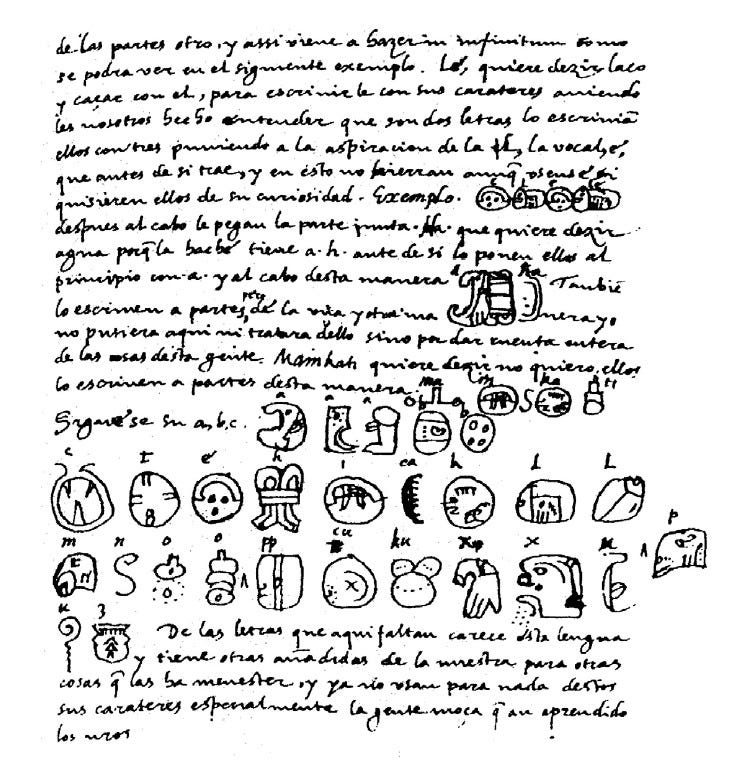 de las partes otro, y assi viene a hazer in infinitum como
se podra ver en el siguiente exemplo. Lé, quiere dezir laço
y caçar con el, para escrivirle con sus carateres aviendo
les nosotros hecho entender que son dos letras lo escrivian
ellos con tres puniendo a la aspiracion de la l, la vocal, é,
que antes de si trae, y en esto no hierran aunq̃ usense si
quisieren ellos de su curiosidad. Exemplo. e l e lé
despues al cabo le pegan la parte junta. Ha. que quiere dezir
agua porq̃ la haché tiene a. h. ante de si lo ponen ellos al
principio con a. y al cabo desta manera a ha Tambiē
lo escriven a partes, pero de la una y otra ma nera yo
no pusiera aqui ni tratara dello sino por dar cuenta entera
de las cosas desta gente. Mainkati quiere dezir no quiero, ellos
lo escriven a partes desta manera ma i n ka ti
Siguese su a, b, c. a a a b b
c t e h i ca k l l
m n o o pp cu ku x x u p
u z De las letras que aqui faltan carece esta lengua
y tiene otras añadidas de la nuestra para otras
cosas q̃ las ha menester, y ya no usan para nada destos
sus carateres especialmente la gente moça q̃ an aprendido
los nros